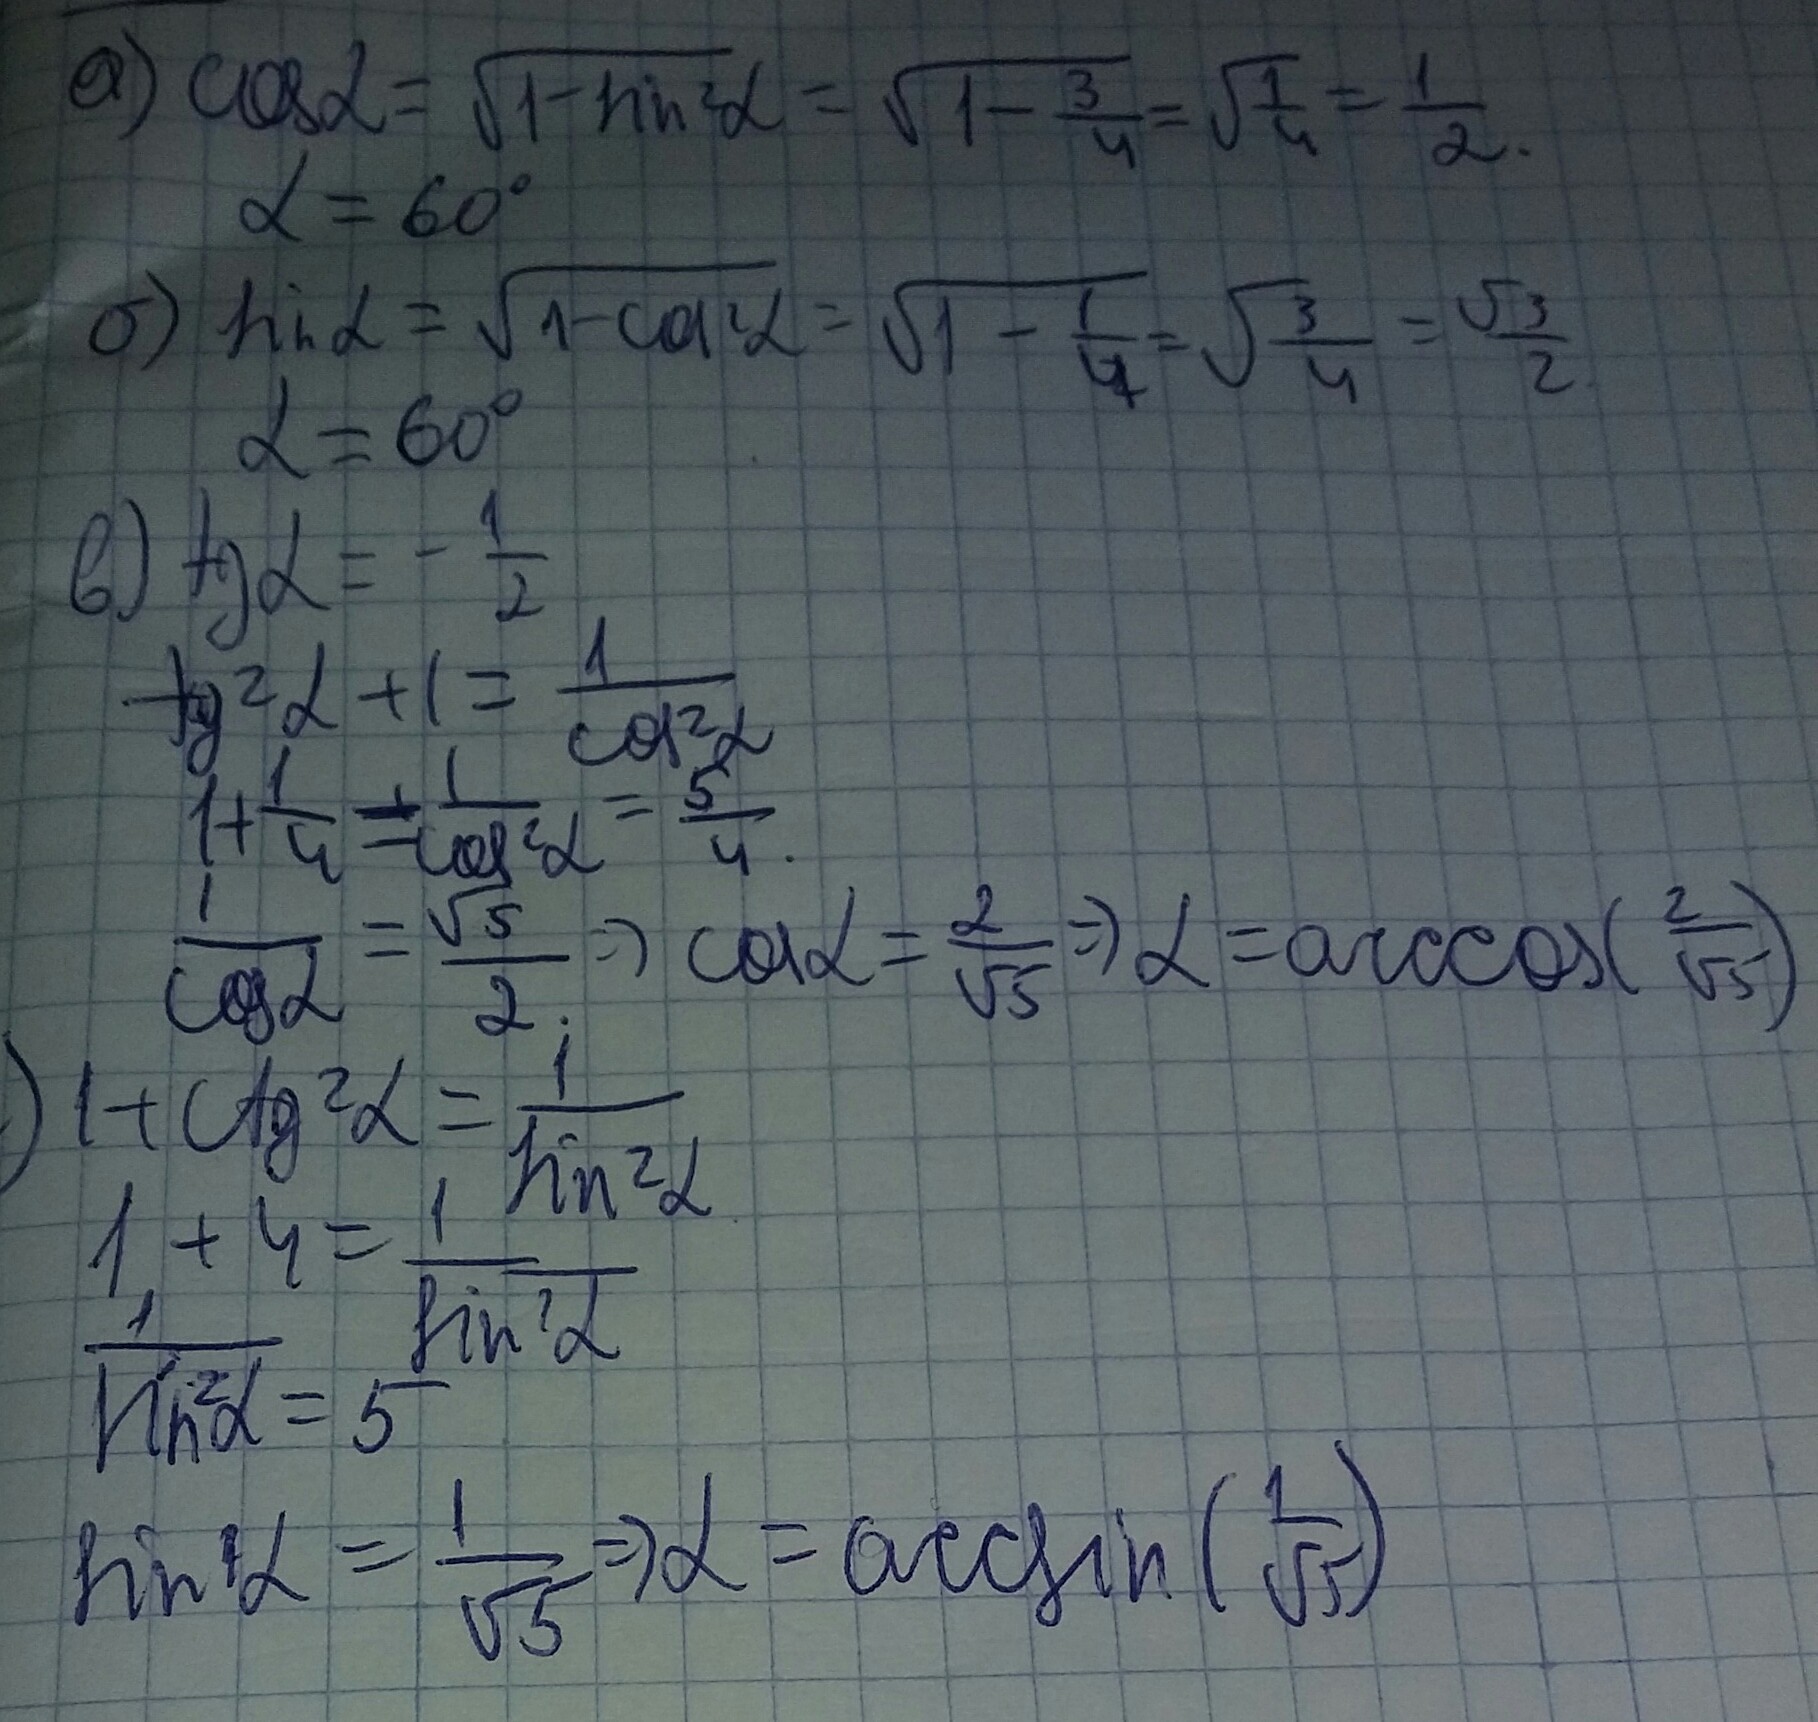 а) cosα = √(1-sin²α) = √(1-3/4) = √(1/4) = 1/2.
α = 60°
б) sinα = √(1-cos²α) = √(1-1/4) = √(3/4) = √3/2.
α = 60°
в) tgα = -1/2
tg²α + 1 = 1/cos²α
1+1/4 = 1/cos²α = 5/4.
1/cosα = √5/2. ⇒ cosα = 2/√5 ⇒ α = arccos(2/√5)
) 1+ctg²α = 1/sin²α
1 + 4 = 1/sin²α
1/sin²α = 5
sinα = 1/√5 ⇒ α = arcsin(1/√5)